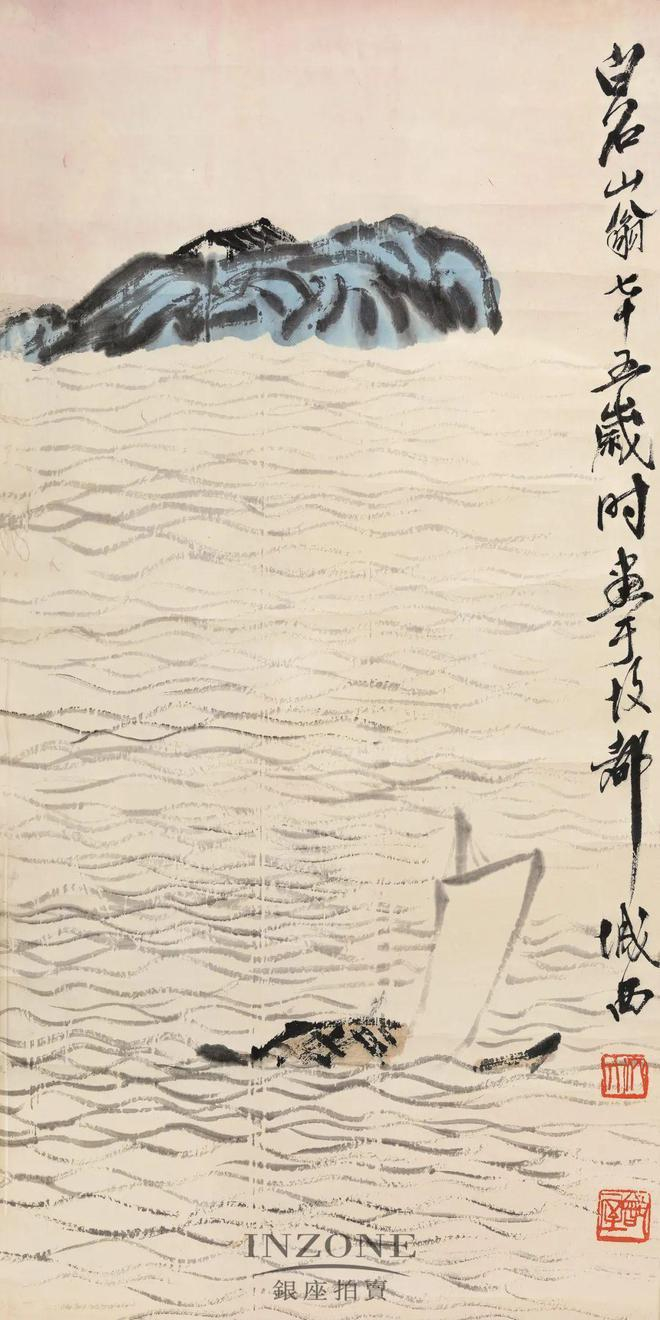 白石山翁七十五歲时畫于故都城西
INZONE
銀座拍賣